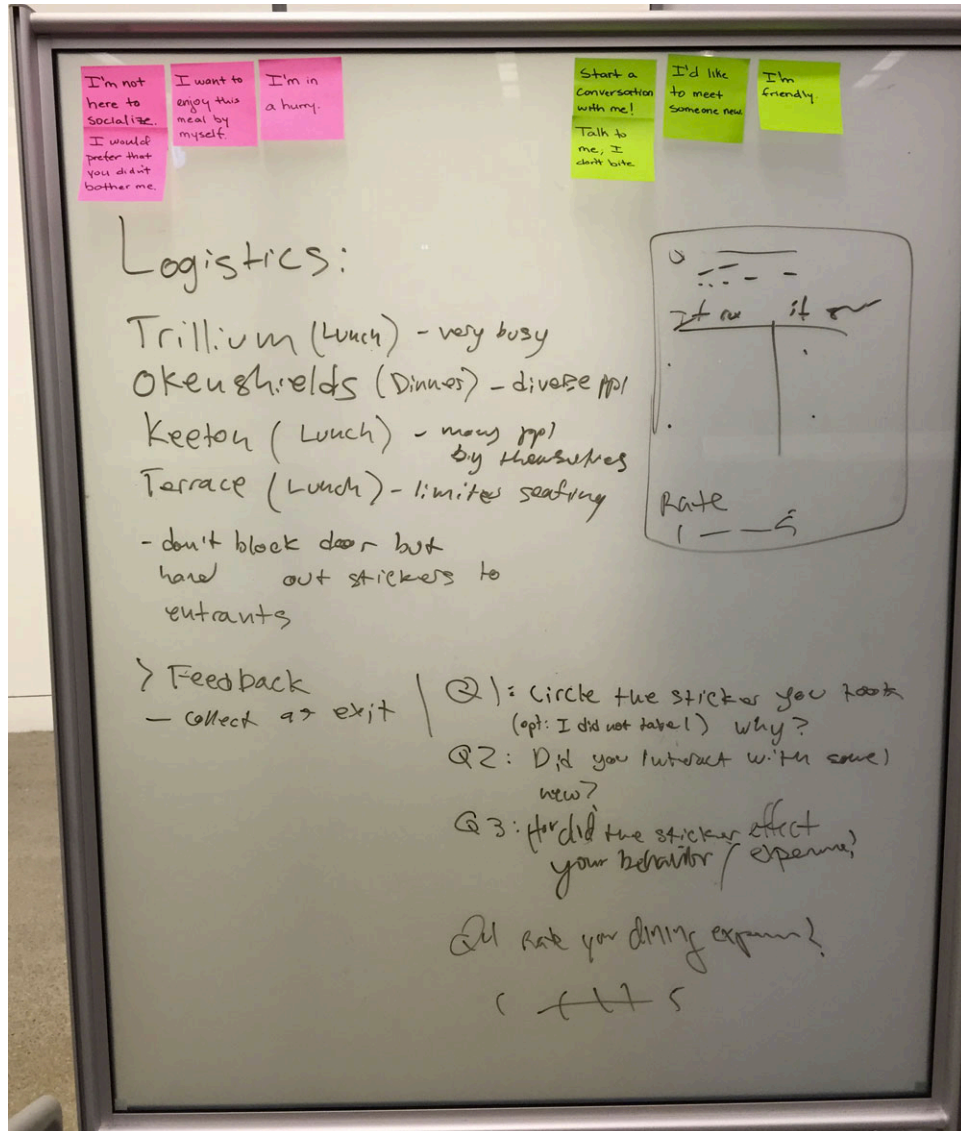 I'm not
here to
socialize.
I would
prefer that
you didn't
bother me.
I want to
enjoy this
meal by
myself.
I'm in
a hurry.
Start a
conversation
with me!
Talk to
me, I
don't bite
I'd like
to meet
someone new.
I'm
friendly.
Logistics:
Trillium (Lunch) - very busy
Okenshields (Dinner) - diverse ppl
Keeton (Lunch) - many ppl
by themselves
Terrace (Lunch) - limited seating
- don't block door but
hand out stickers to
entrants
> Feedback
- collect as exit
it
Rate
1 - - 5
Q1: Circle the sticker you took
(opt: I did not take 1) why?
Q2: Did you interact with some1
new?
Q3: How did the sticker effect
your behavior / experience?
Q4 Rate your dining experience?
1 5